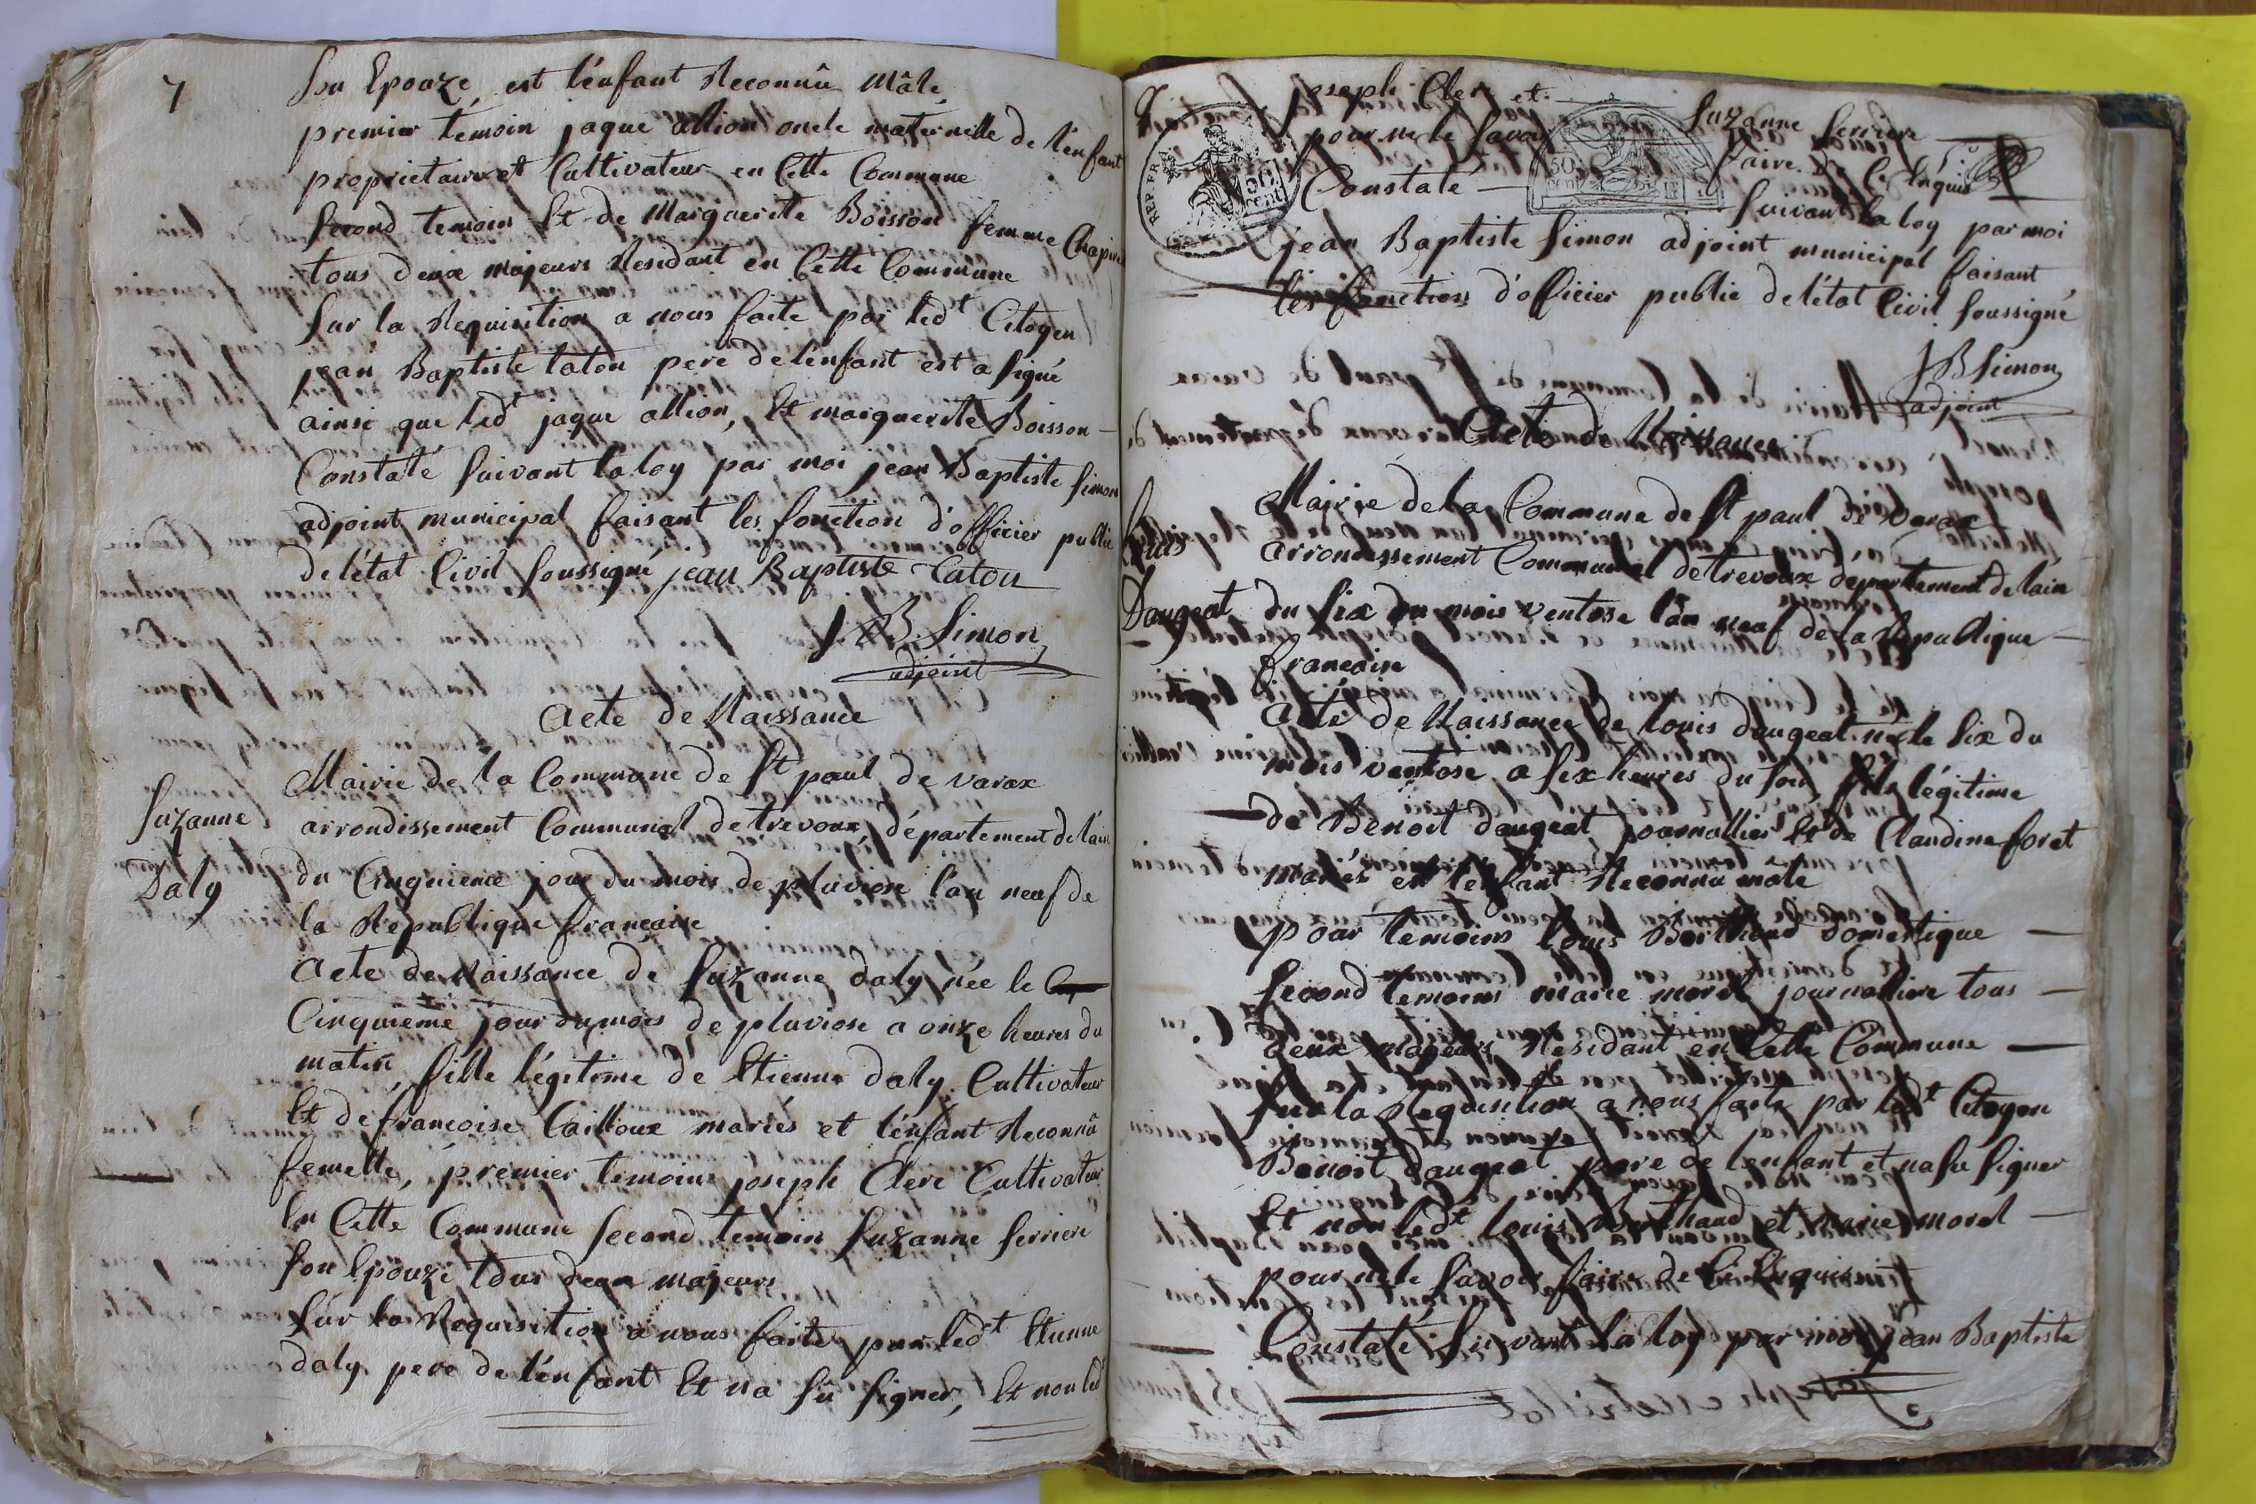 7
Son Epouze, est l'enfant Reconnû Mâle
premier temoin jaque allion oncle maternelle de l'enfant
proprietaire et Cultivateur en Cette Commune
Second temoin Et de Marguerite Boisson femme
tous deux majeurs Residant en Cette Commune
Sur la Requisition a nous faite par ledt Citoyen
jean Baptiste taton pere de l'enfant est a signé
ainsi que ledt jaque allion, Et marguerite Boisson
Constaté Suivant la loy par moi jean Baptiste Simon
adjoint municipal faisant les fonction d'officier public
de l'état Civil Soussigné jean Baptiste taton
J. B. Simon
adjoint
Acte de Naissance
Suzanne
Daly
Mairie de la Commune de St paul de varax
arrondissement Communal de trevoux, département de l'ain
du Cinquieme jour du mois de pluviose l'an neuf de
la Republique francaise
Acte de Naissance de Suzanne daly née le
Cinquieme jour du mois de pluviose a onze heures du
matin fille légitime de Etienne daly Cultivateur
Et de francoise Cailloux mariés et l'enfant Reconnû
femelle, premier temoins joseph Clerc Cultivateur
En Cette Commune Second temoin Suzanne ferriere
Son Epouze tous deux majeurs
Sur la Requisition a nous faite par ledt Etienne
daly pere de l'enfant Et na sû signer, Et non ledt
joseph Clerc et Suzanne ferriere
pour ne le savoir faire de ce Enquis
REP. FRA.
50
cent
Constaté Suivant la loy par moi
jean Baptiste Simon adjoint municipal faisant
les fonction d'officier public de l'état Civil Soussigné
J B Simon
adjoint
Acte de Naissance
Louis
Daugeat
Mairie de la Commune de St paul de Varax
arrondissement Communal de trevoux département de l'ain
du Six du mois ventose l'an neuf de la Republique
francaise
Acte de Naissance de louis daugeat né le Six du
mois ventose a Six heures du Soir, fils légitime
de Benoit daugeat journallier Et de Claudine foret
mariés et l'enfant Reconnu male
pour temoins louis Berthaud domestique
Second temoins marie morel journalliere tous
deux majeurs Residant en Cette Commune
Sur la Requisition a nous faite par ledt Citoyen
Benoit daugeat pere de l'enfant et na su signer
Et non ledt louis Berthaud et marie morel
pour ne le savoir faire de ce Enquis
Constaté Suivant la loy par moi jean Baptiste